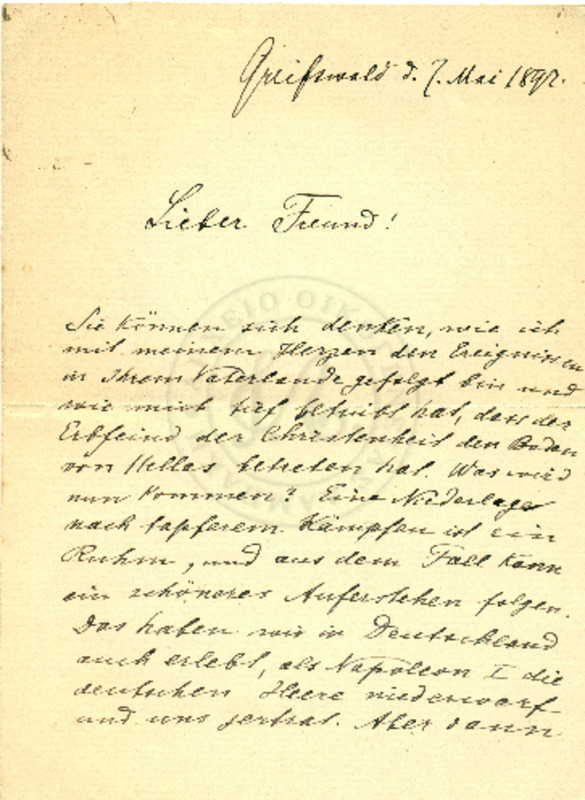 Greifswald d. 7. Mai 1897.
Lieber Freund!
Sie können sich denken, wie ich
mit meinem Herzen den Ereignissen
in Ihrem Vaterlande gefolgt bin und
wie mich tief betrübt hat, dass der
Erbfeind der Christenheit den Boden
von Hellas betreten hat. Was wird
nun kommen? Eine Niederlage
nach tapferem Kämpfen ist ein
Ruhm, und aus dem Fall kann
ein schöneres Auferstehen folgen.
Das haben wir in Deutschland
auch erlebt, als Napoleon I die
deutschen Heere niederwarf
und uns zertrat. Aber dann